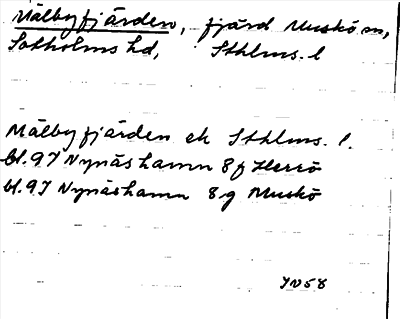 Mälbyfjärden, fjärd Muskö sn,
Sotholms hd, Sthlms. l
Mälbyfjärden ek Sthlms. l.
bl. 9I Nynäshamn 8f Herrö
bl. 9I Nynäshamn 8g Muskö
JN58